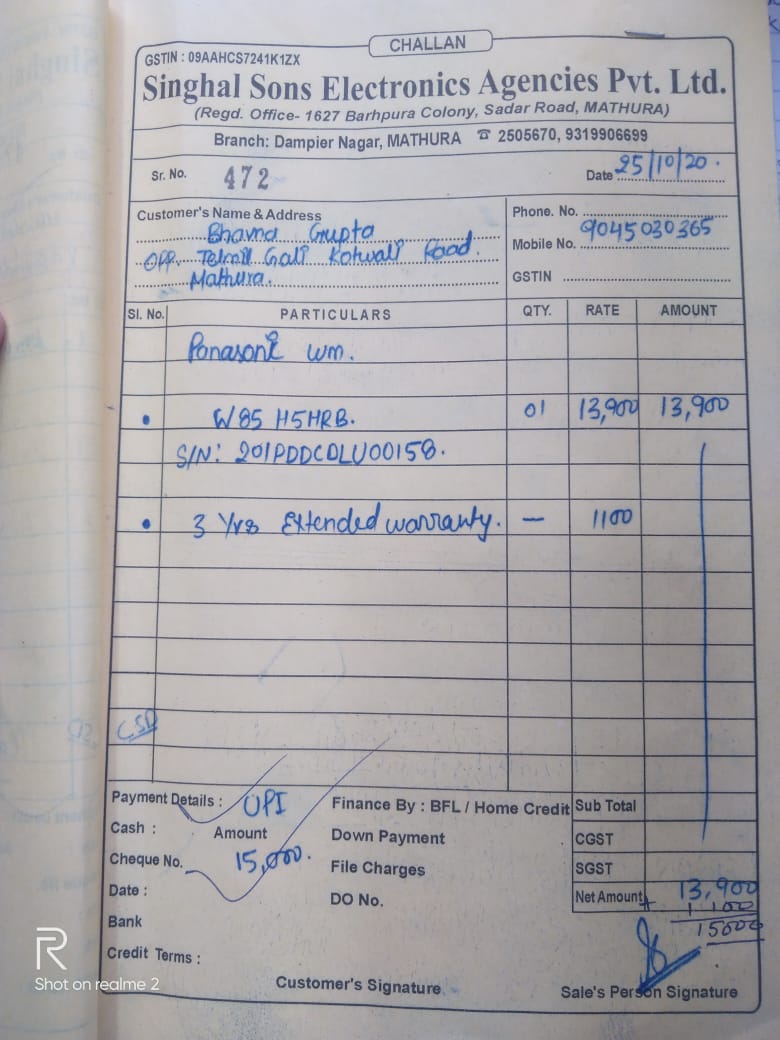 CHALLAN
GSTIN : 09AAHCS7241K1ZX
Singhal Sons Electronics Agencies Pvt. Ltd.
(Regd. Office- 1627 Barhpura Colony, Sadar Road, MATHURA)
Branch: Dampier Nagar, MATHURA ☎ 2505670, 9319906699
Sr. No. 472 Date 25/10/20.
Customer's Name & Address
Bhavna Gupta
OPP. Gali Kotwali Road.
Mathura.
Phone. No.
Mobile No. 9045030365
GSTIN
Sl. No. PARTICULARS QTY. RATE AMOUNT
Panasonic wm.
• W85 H5HRB. 01 13,900 13,900
S/N: 201PDDCDLU00158.
• 3 Yrs Extended warranty. — 1100
CSD
Payment Details : UPI
Cash : Amount
Cheque No. 15,000.
Date :
Bank
Credit Terms :
Finance By : BFL / Home Credit
Down Payment
File Charges
DO No.
Sub Total
CGST
SGST
Net Amount 13,900
+ 1100
15000
Customer's Signature
Sale's Person Signature
R
Shot on realme 2